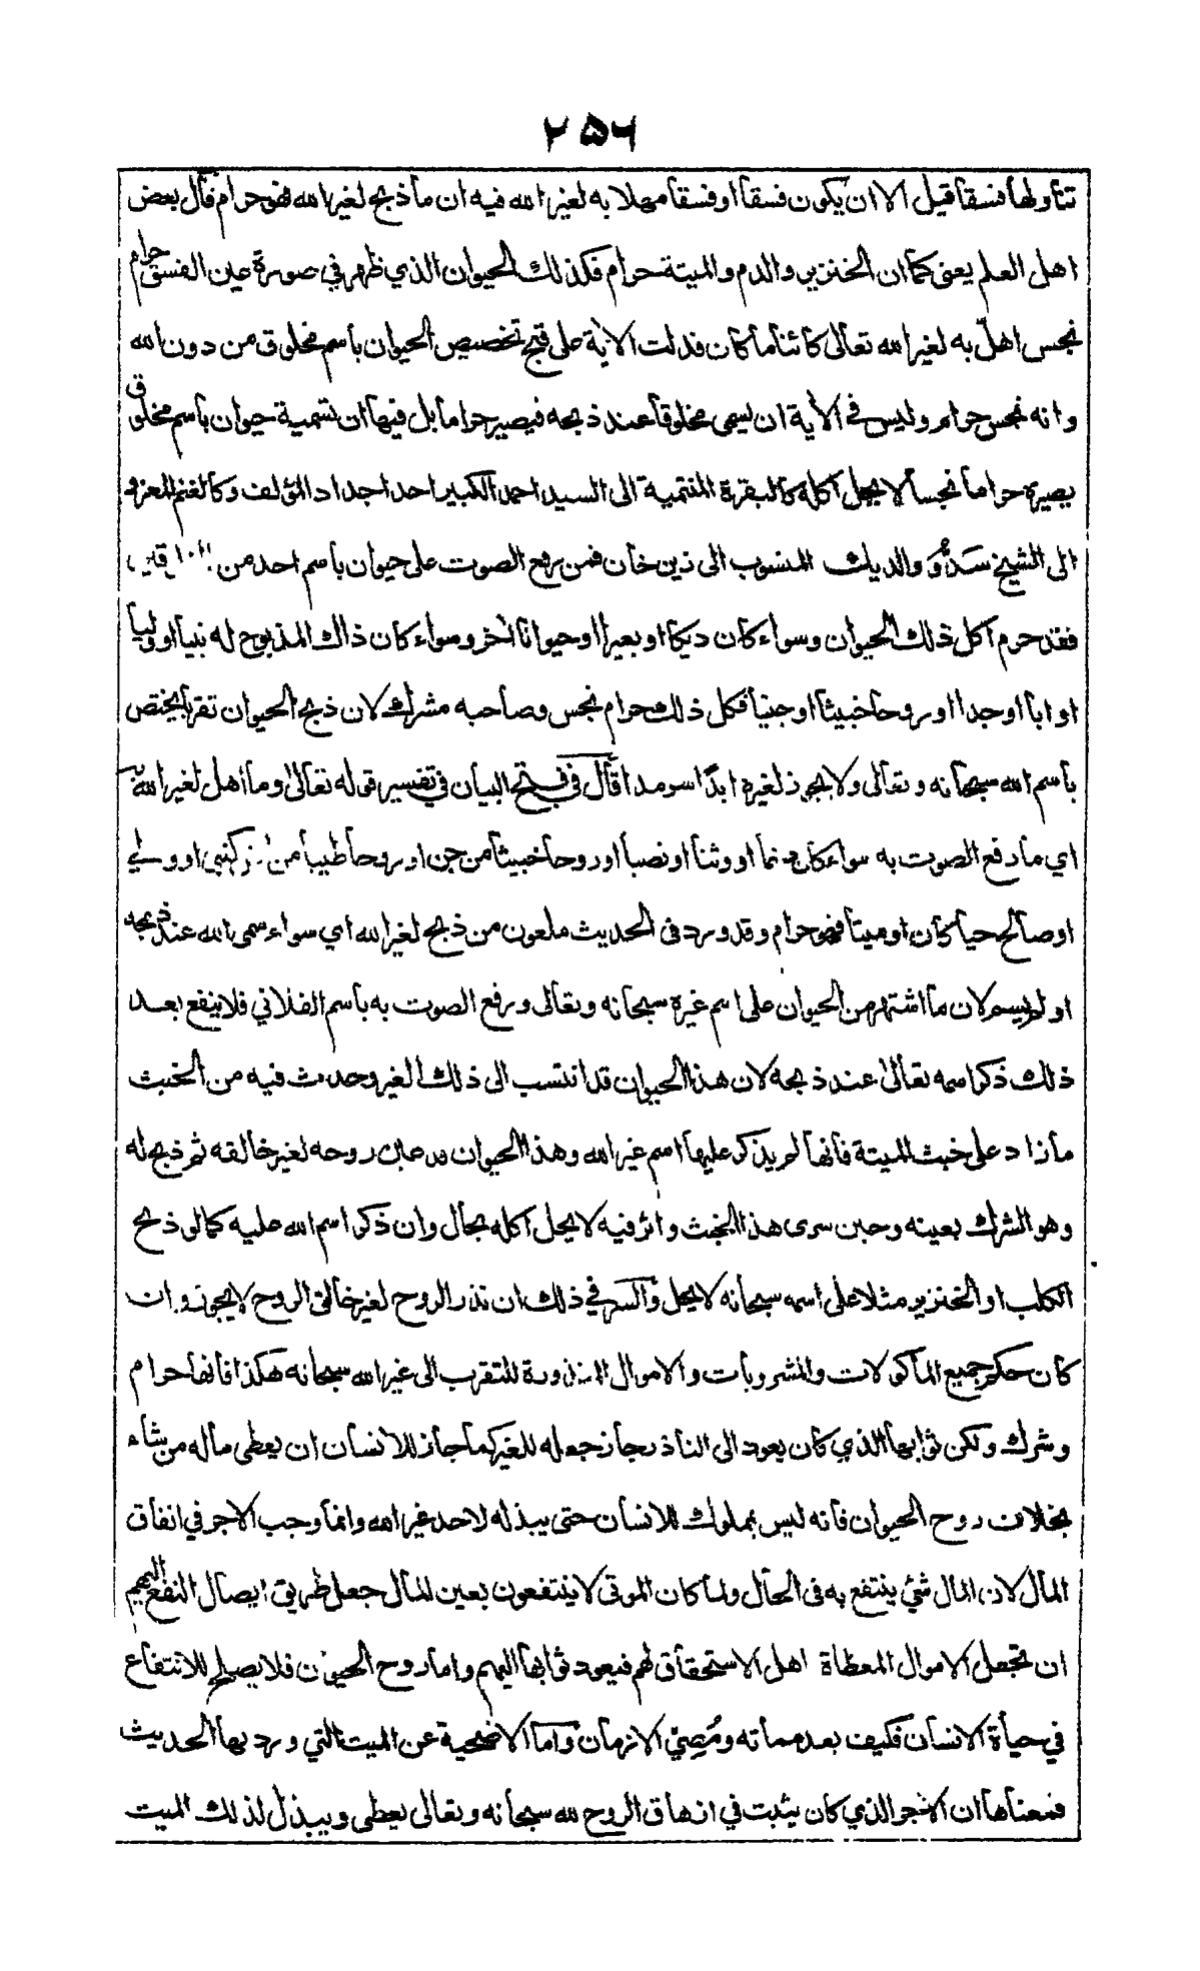 ۲۵۶
تناولها فسقا قيل الا ان يكون فسقا او فسقا مهلا به لغير الله فيه ان ما ذبح لغير الله فهو حرام قال بعض
اهل العلم يعني كما ان الخنزير والدم والميتة حرام فكذلك الحيوان الذي ظهر في صورة عين الفسق حرام
نجس اهلّ به لغير الله تعالى كائنا ما كان فدلت الآية على قبح تخصيص الحيوان باسم مخلوق من دون الله
وانه نجس حرام وليس في الآية ان يسمى مخلوقا عند ذبحه فيصير حراما بل فيها ان تسمية حيوان باسم مخلوق
يصيره حراما نجسا لا يحل اكله كالبقرة المنتمية الى السيد احمد الكبير احد اجداد المؤلف وكالغنم المعزو
الى الشيخ سَدُّو والديك المنسوب الى زين خان فمن رفع الصوت على حيوان باسم احد من
فقد حرم اكل ذلك الحيوان وسواء كان ديكا او بعيرا او حيوانا آخر وسواء كان ذاك المذبوح له نبيا او وليا
او ابا او جدا او روحا خبيثا او جنيا فكل ذلك حرام نجس وصاحبه مشرك لان ذبح الحيوان تقربا يختص
باسم الله سبحانه وتعالى ولا يجوز لغيره ابدًا سرمدا قال في فتح البيان في تفسير قوله تعالى وما اهل لغير الله به
اي ما رفع الصوت به سواء كان صنما او وثنا او نصبا او روحا خبيثا من جن او روحا طيبا من كنبي او ولي
او صالح حيا كان او ميتا فهو حرام وقد ورد في الحديث ملعون من ذبح لغير الله اي سواء سمى الله عند ذبحه
او لم يسم لان ما اشتهر من الحيوان على اسم غيره سبحانه وتعالى ورفع الصوت به باسم الفلاني فلا ينفع بعد
ذلك ذكر اسمه تعالى عند ذبحه لان هذا الحيوان قد انتسب الى ذلك الغير وحدث فيه من الخبث
ما زاد على خبث الميتة فانها لم يذكر عليها اسم غير الله وهذا الحيوان روحه لغير خالقه ثم ذبح له
وهو الشرك بعينه وحين سرى هذا الخبث واثر فيه لا يحل اكله بحال وان ذكر اسم الله عليه كما لو ذبح
الكلب او الخنزير مثلا على اسمه سبحانه لا يحل والسر في ذلك ان نذر الروح لغير خالق الروح لا يجوز وان
كان حكم جميع المأكولات والمشروبات والاموال المنذورة للتقرب الى غير الله سبحانه هكذا فانها حرام
وشرك ولكن ثوابها الذي كان يعود الى الناذر جاز جعله للغير كما جاز للانسان ان يعطى ماله من يشاء
بخلاف روح الحيوان فانه ليس بمملوك للانسان حتى يبذله لاحد غير الله وانما وجب الاجر في انفاق
المال لان المال شئ ينتفع به في الحال ولما كان الموتى لا ينتفعون بعين المال جعل طريق ايصال النفع اليهم
ان تجعل الاموال المعطاة اهل الاستحقاق لهم فيعود ثوابها اليهم واما روح الحيوان فلا يصلح للانتفاع
في حياة الانسان فكيف بعد مماته ومُضِيّ الازمان واما الاضحية عن الميت التي ورد بها الحديث
فمعناها ان الاجر الذي كان يثبت في ازهاق الروح لله سبحانه وتعالى يعطى ويبذل لذلك الميت